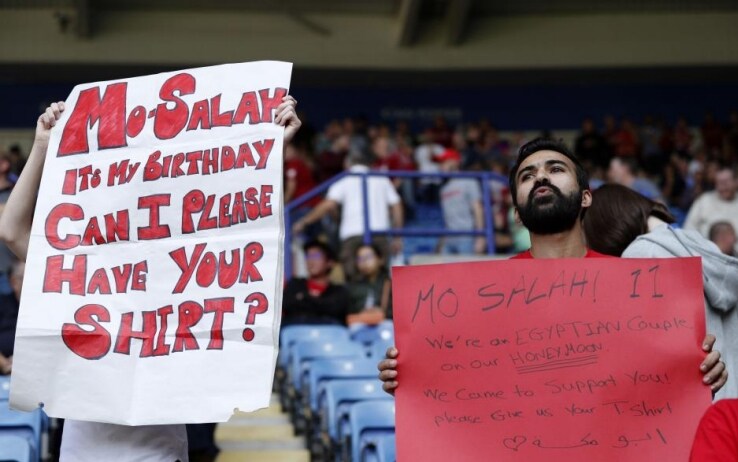 MO-SALAH
IT'S MY BIRTHDAY
CAN I PLEASE
HAVE YOUR
SHIRT?
MO SALAH! 11
We're an EGYPTIAN Couple
on our HONEYMOON
We Came to Support You!
please Give us Your T Shirt
ابو مكه